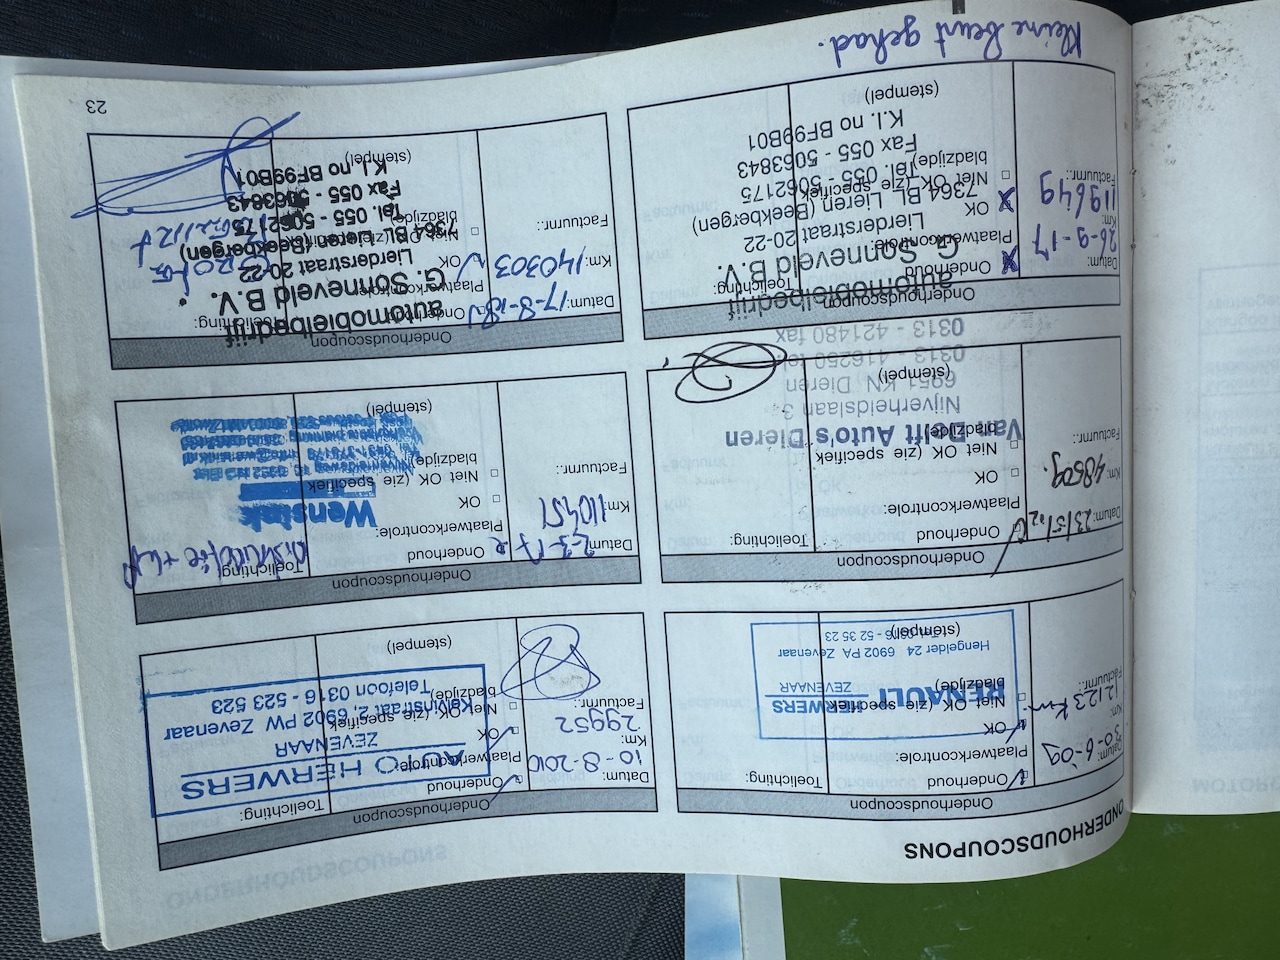 ONDERHOUDSCOUPONS
Onderhoudscoupon
Datum:
30-6-09
Km:
12123 km
Factuurnr.:
Onderhoud
Plaatwerkcontrole:
OK
Niet OK (zie specifiek
bladzijde)
Toelichting:
(stempel)
RENAULT
HERWERS
ZEVENAAR
Hengelder 24 6902 PA Zevenaar
Tel. 0316 - 52 35 23
Onderhoudscoupon
Datum:
10-8-2010
Km:
29952
Factuurnr.:
Onderhoud
Plaatwerkcontrole:
OK
Niet OK (zie specifiek
bladzijde)
Toelichting:
(stempel)
AUTO HERWERS
ZEVENAAR
Kelvinstraat 2, 6902 PW Zevenaar
Telefoon 0316 - 523 523
Onderhoudscoupon
Datum:
23/5/12
Km:
48509
Factuurnr.:
Onderhoud
Plaatwerkcontrole:
OK
Niet OK (zie specifiek
bladzijde)
Toelichting:
(stempel)
Van Delft Auto's Dieren
Nijverheidslaan 3
6951 KN Dieren
0313 - 416250 tel.
0313 - 421480 fax
Onderhoudscoupon
Datum:
Km:
110451
Factuurnr.:
Onderhoud
Plaatwerkcontrole:
OK
Niet OK (zie specifiek
bladzijde)
Toelichting:
(stempel)
Wensink
Onderhoudscoupon
Datum:
26-9-17
Km:
119649
Factuurnr.:
Onderhoud
Plaatwerkcontrole:
OK
Niet OK (zie specifiek
bladzijde)
Toelichting:
(stempel)
automobielbedrijf
G. Sonneveld B.V.
Lierderstraat 20-22
7364 BL Lieren (Beekbergen)
Tel. 055 - 5062175
Fax 055 - 5063843
K.I. no BF99B01
Kleine Beurt gehad.
Onderhoudscoupon
Datum:
17-8-18
Km:
140303
Factuurnr.:
Onderhoud
Plaatwerkcontrole:
OK
Niet OK (zie specifiek
bladzijde)
Toelichting:
(stempel)
automobielbedrijf
G. Sonneveld B.V.
Lierderstraat 20-22
7364 BL Lieren (Beekbergen)
Tel. 055 - 5062175
Fax 055 - 5063843
K.I. no BF99B01
23